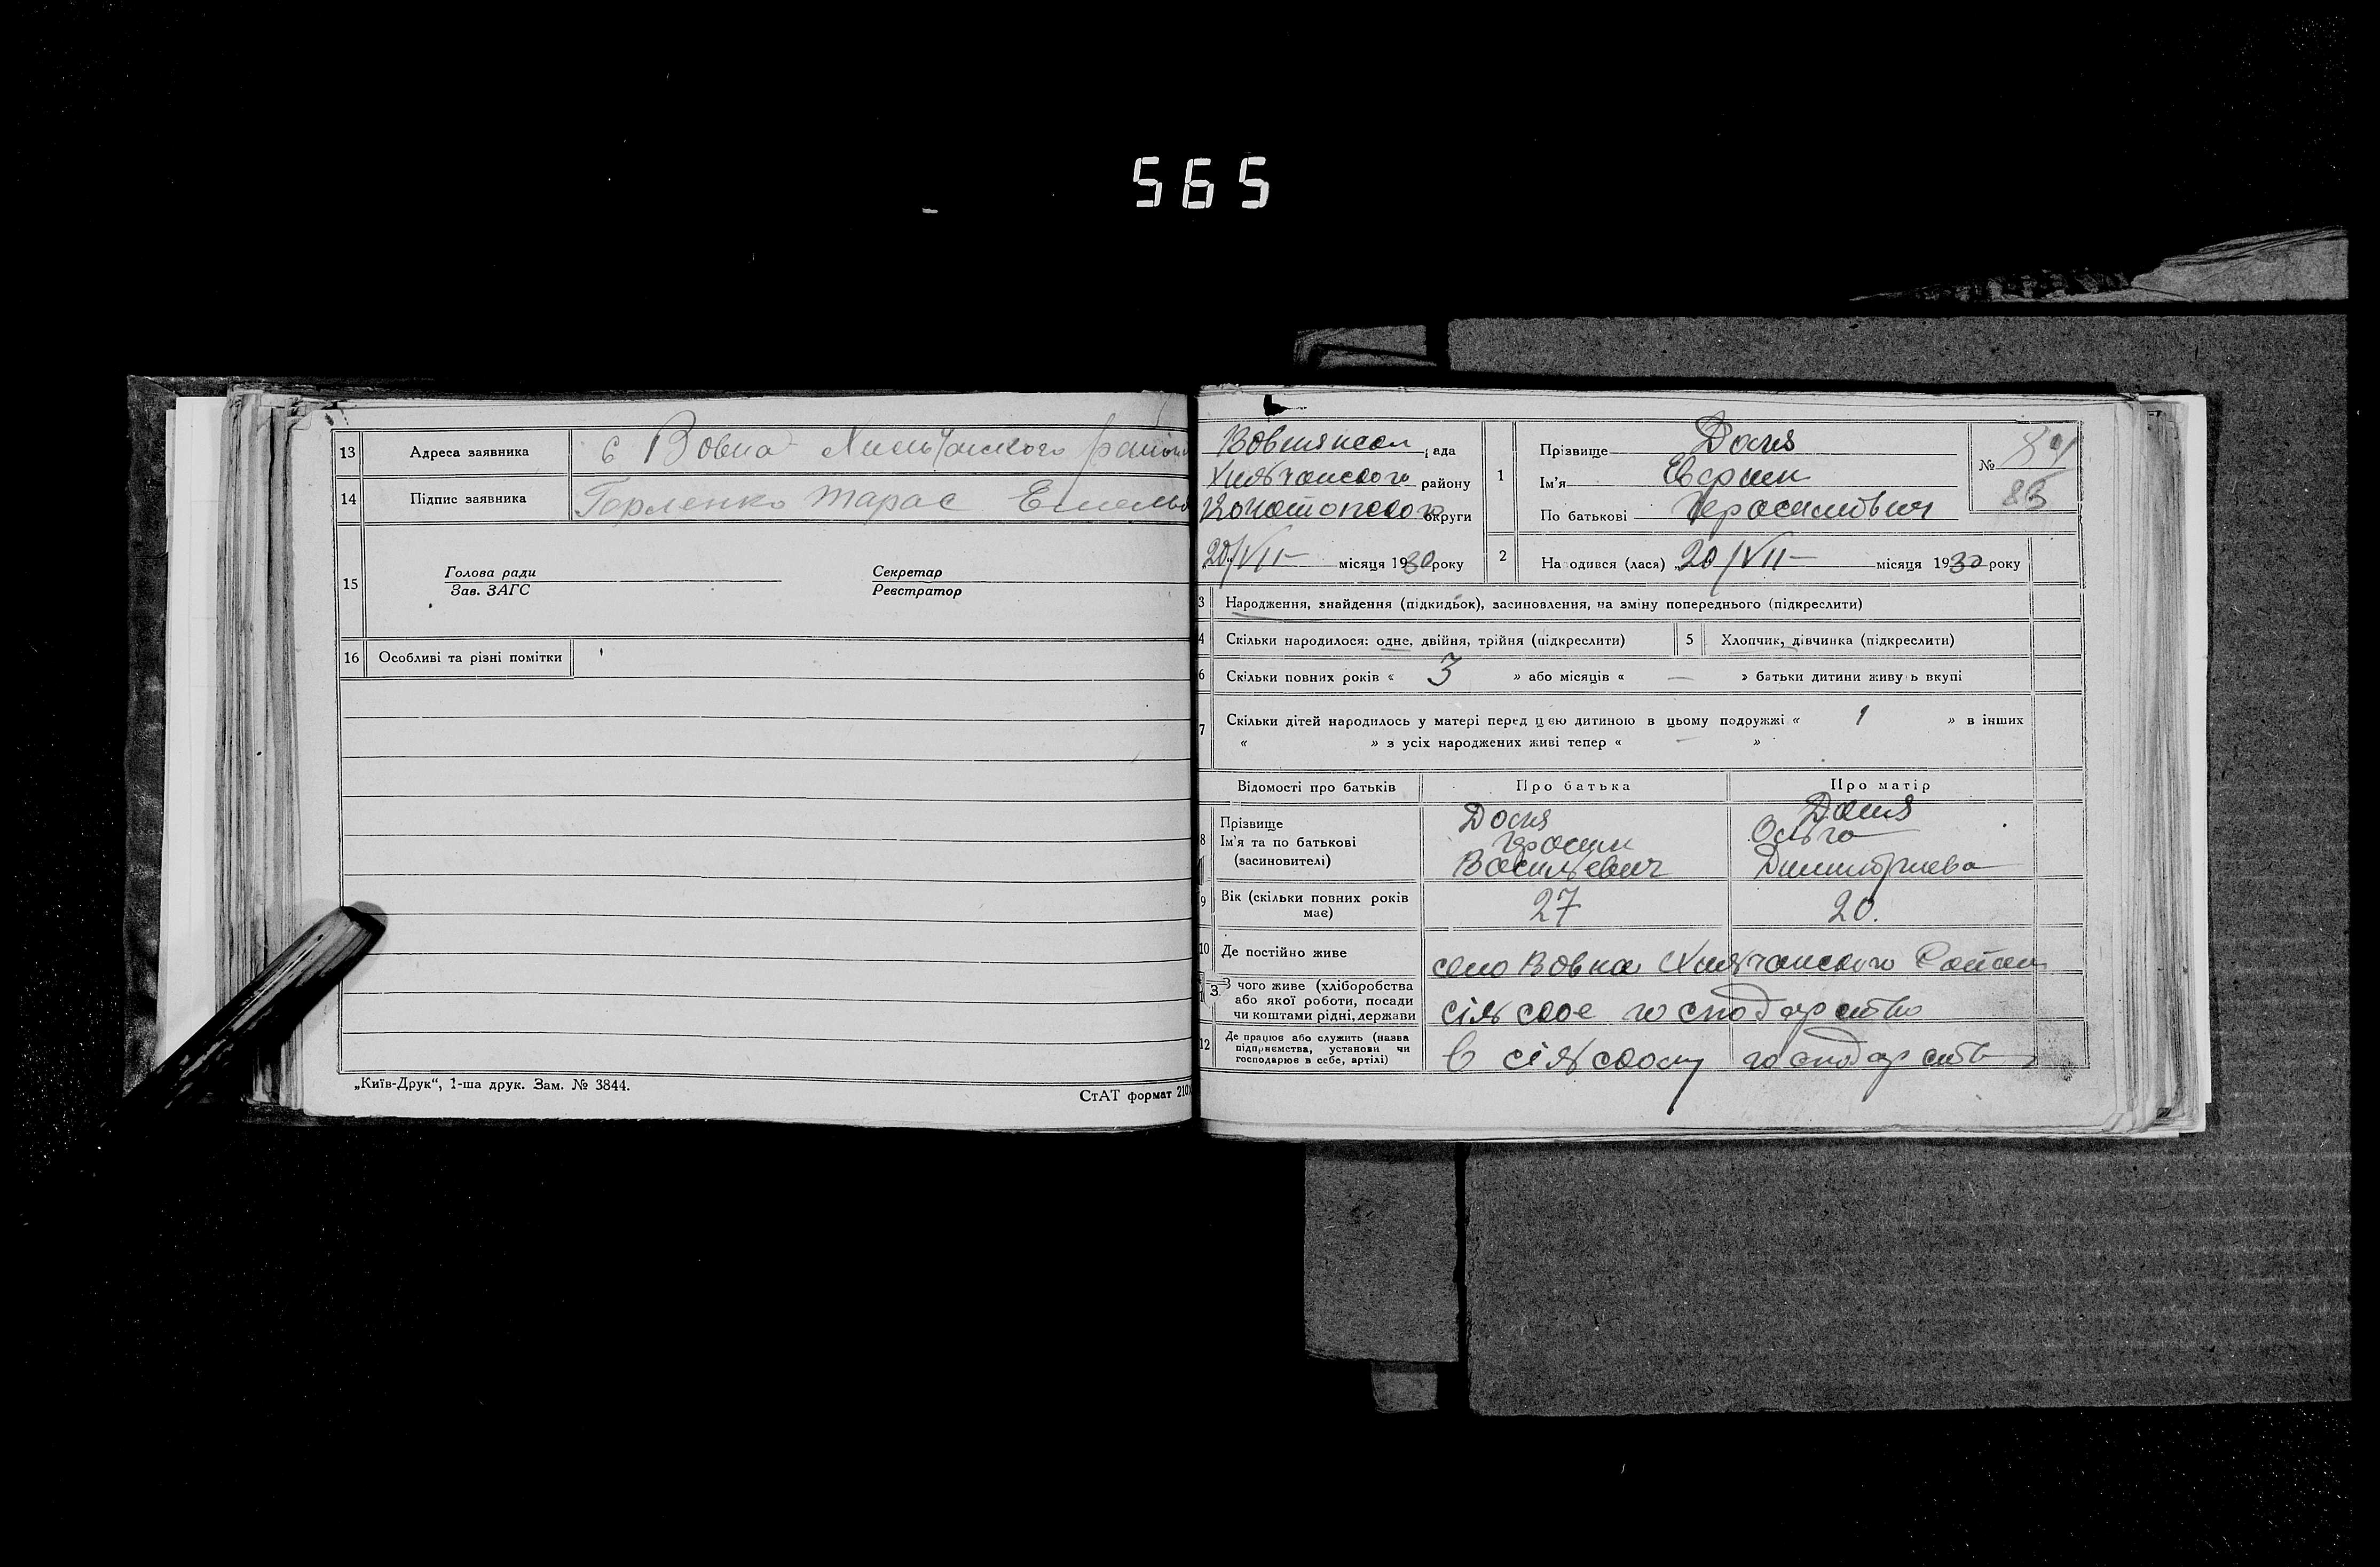 565
13 Адреса заявника с Вовна Хильчанского район
14 Підпис заявника Горленко Тарас Емельо
15 Голова ради Секретар
Зав. ЗАГС Реєстратор
16 Особливі та різні помітки
„Київ-Друк“, 1-ша друк. Зам. № 3844.
СтАТ формат 210
рада
Хильчанского району
Конотопского округи
20/VII місяця 1930 року
1 Прізвище Доля
Ім'я Ефрим
По батькові Герасимович
№ 84
83
2 Народився (лася) „20/VII місяця 1930 року
3 Народження, знайдення (підкидьок), засиновлення, на зміну попереднього (підкреслити)
4 Скільки народилося: одне, двійня, трійня (підкреслити) 5 Хлопчик, дівчинка (підкреслити)
6 Скільки повних років « 3 » або місяців « — » батьки дитини живуть вкупі
7 Скільки дітей народилось у матері перед цією дитиною в цьому подружжі « 1 » в інших
« » з усіх народжених живі тепер « — »
Відомості про батьків Про батька Про матір
8 Прізвище Доля Доля
Ім'я та по батькові Герасим Ольга
(засиновителі) Васильевич Димитриева
9 Вік (скільки повних років має) 27 20.
10 Де постійно живе село Вовна Хильчанского Район
11 З чого живе (хліборобства
або якої роботи, посади
чи коштами рідні, держави сільское господарство
12 Де працює або служить (назва
підприємства, установи чи
господарює в себе, артілі) в сільском господарств